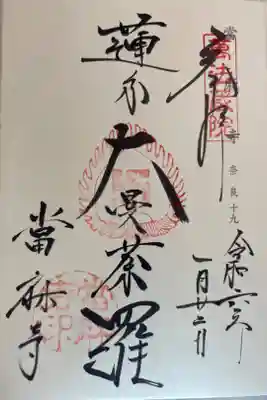 奉拝
奈良十九
令和六年
一月廿二日
蓮糸
大曼荼羅
當麻寺